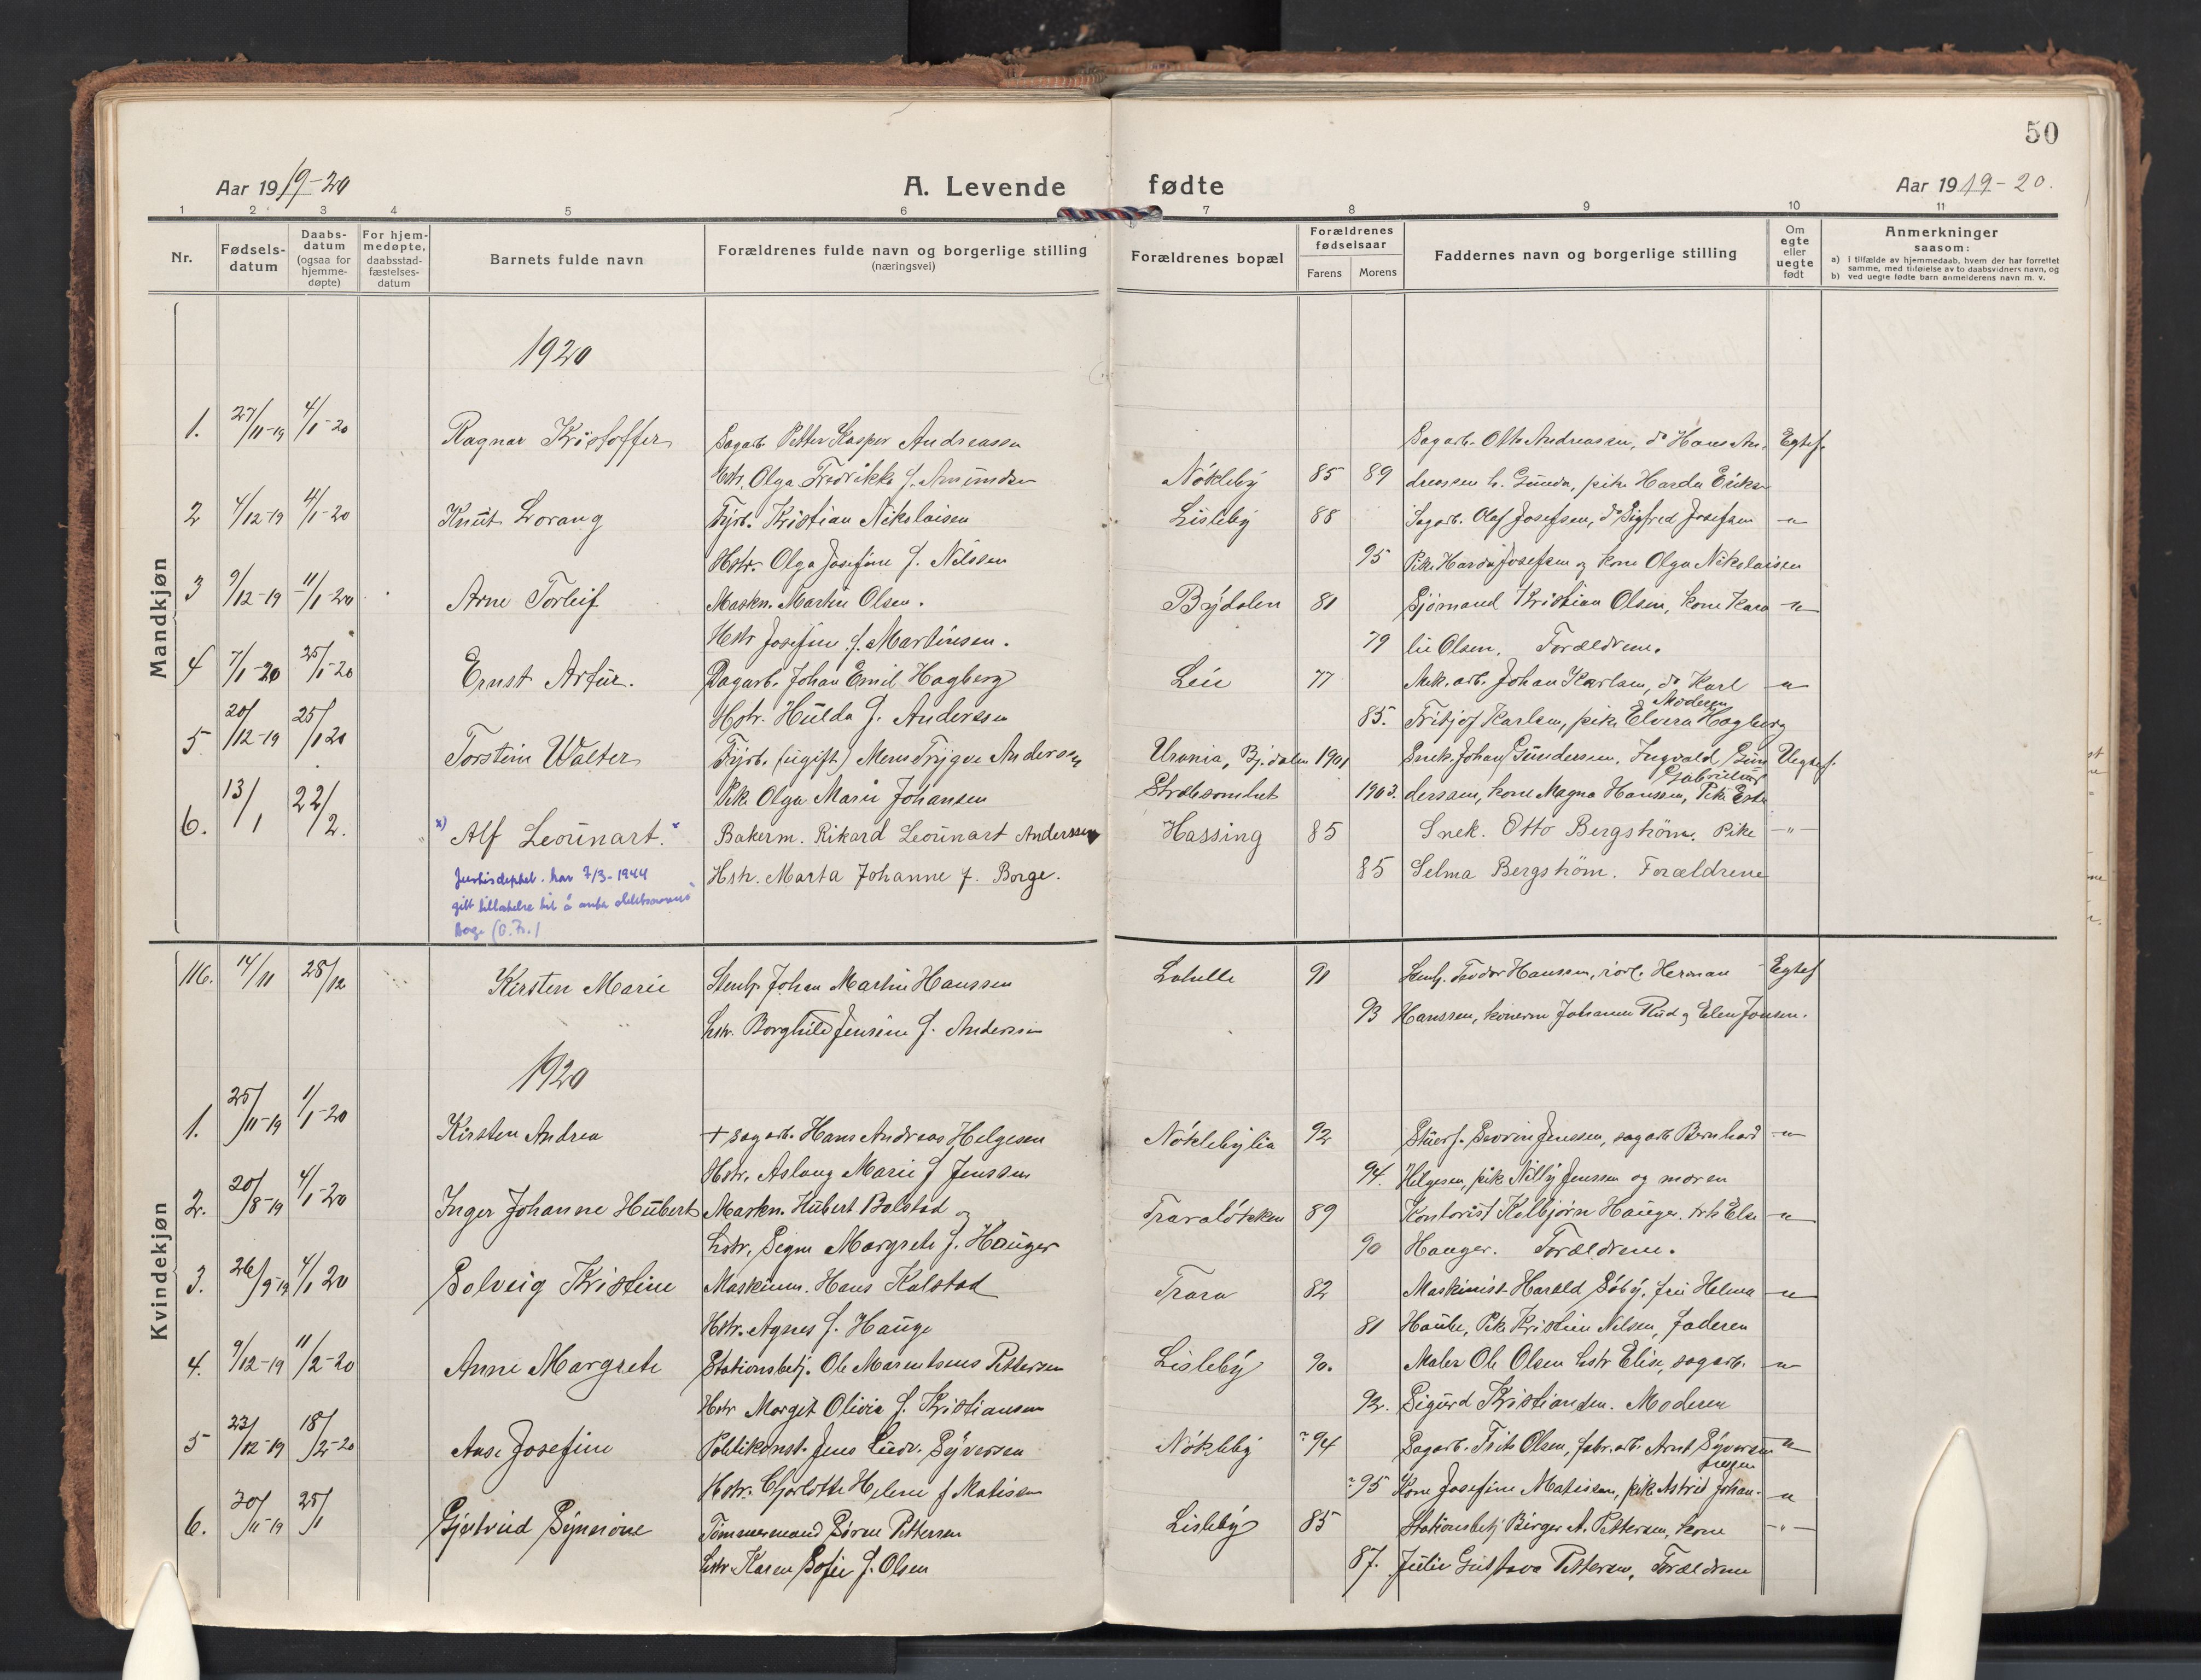 50
Aar 1919-20
A. Levende fødte
Aar 1919-20.
1 2 3 4 5 6 7 8 9 10 11
Nr.
Fødsels-
datum
Daabs-
datum
(ogsaa for
hjemme-
døpte)
For hjem-
medøpte,
daabsstad-
fæstelses-
datum
Barnets fulde navn
Forældrenes fulde navn og borgerlige stilling
(næringsvei)
Forældrenes bopæl
Forældrenes
fødselsaar
Farens Morens
Faddernes navn og borgerlige stilling
Om
egte
eller
uegte
født
Anmerkninger
saasom:
a) i tilfælde av hjemmedaab, hvem der har forrettet
samme, med tilføielse av to daabsvidners navn, og
b) ved uegte fødte barn anmelderens navn m. v.
Mandkjøn
1920
1. 27/11-19 4/1-20 Ragnar Kristoffer Sagarb. Petter Kasper Andreassen Sagarb. Otto Andreassen, do Hans An- Egtef.
Hstr. Olga Fredrikke f. Amundsen Nökleby 85 89 dreassen h. Gunda, pike Harda Eriksen
2 4/12-19 4/1-20 Knut Lorang Fyrb. Kristian Nikolaisen Lisleby 88 Sagarb. Olaf Josefsen, do Sigfred Josefsen -"-
Hstr. Olga Josefine f. Nilssen 95 Pike Harda Josefsen og kone Olga Nikolaisen
3 9/12-19 11/1-20 Arne Torleif Maskn. Martin Olsen. Brydalen 81 Sjömand Kristian Olsen, kone Karo -"-
Hstr Josefine f. Martinsen. 79 lie Olsen. Forældrene.
4 7/1-20 25/1-20 Ernst Artur. Dagarb. Johan Emil Hagberg Leie 77 Mek. arb. Johan Karlsen, do Karl -"-
Moderen
Hstr. Hulda f. Anderssen 85. Fritjof Karlsen, pike Elvera Hagberg
5 20/12-19 25/1 20 Torstein Walter Fyrb. (ugift) Mens Trygve Anderssen Urania, Bj.dalen 1901 Snek. Johan Gundersen, Ingvald Gun Uegtef.
Pike Olga Marie Johansen Stræbsomhet 1903. dersen, kone Magna Hanssen, Pike Ester
6. 13/1 22/2. x) Alf Leonnart. x Bakerm. Rikard Leonnart Anderssen Hassing 85 Snek. Otto Bergström. Pike -"-
Hstr. Marta Johanne f. Borge. 85 Selma Bergström. Forældrene
Justisdeptet. har 7/3-1944
gitt tillatelse til å anta slektsnavnet
Borge (O.Fr.)
Kvindekjøn
116. 14/11 28/12 Kirsten Marie Stenh. Johan Martin Hanssen 91 Stenh. Teodor Hanssen, rörl. Herman Egtef
Hstr. Borghild Jensine f. Anderssen 93 Hanssen, konerne Johanne Rud og Elen Jonsen.
1920
1. 25/11-19 1/1-20 Kirsten Andrea + sagarb. Hans Andreas Helgesen Nöklebylia 92 Stuerf. Severin Jenssen, sagarb Bernhard -"-
Hstr. Aslaug Marie f Jenssen 94. Helgesen, pike Nilly Jenssen og moren
2. 20/8-19 4/1-20 Inger Johanne Hübert Maskn. Hübert Bolstad og Traralökken 89 Kontorist Kolbjörn Hauger. Else -"-
Hstr. Signe Margrete f. Hauger 90 Hauger. Forældrene.
3. 26/9-19 4/1 20 Solveig Kristine Maskinm. Hans Kalstad Trara 82 Maskinist Harald Söby, fru Helma -"-
Hstr. Agnes f. Hauge 81 Hauge, Pike Kristine Nilsen, faderen
4. 9/12-19 11/2-20 Anne Margrete Stationsbetj. Ole Marentsens Pettersen Lisleby 90. Maler Ole Olsen hstr Elise, sagarb. -"-
Hstr Margit Olivia f. Kristiansen 92. Sigurd Kristiansen. Moderen
5 23/12-19 18/2-20 Aase Josefine Politikonst. Jens Ludv. Syversen Nökleby 94 Sagarb. Frits Olsen, fabr.arb. Arnt Syversen -"-
Hstr. Charlotte Helene f Matisen 95 Kone Josefine Matissen, pike Astrid Johan- -"-
6. 30/11-19 25/1 Gjertrud Synnöve Tömmermand Sören Pettersen Lisleby 85 Stationsbetj Birger A. Pettersen, kone -"-
Hstr. Karen Sofie f. Olsen 87. Julie Gustava Pettersen, Forældrene